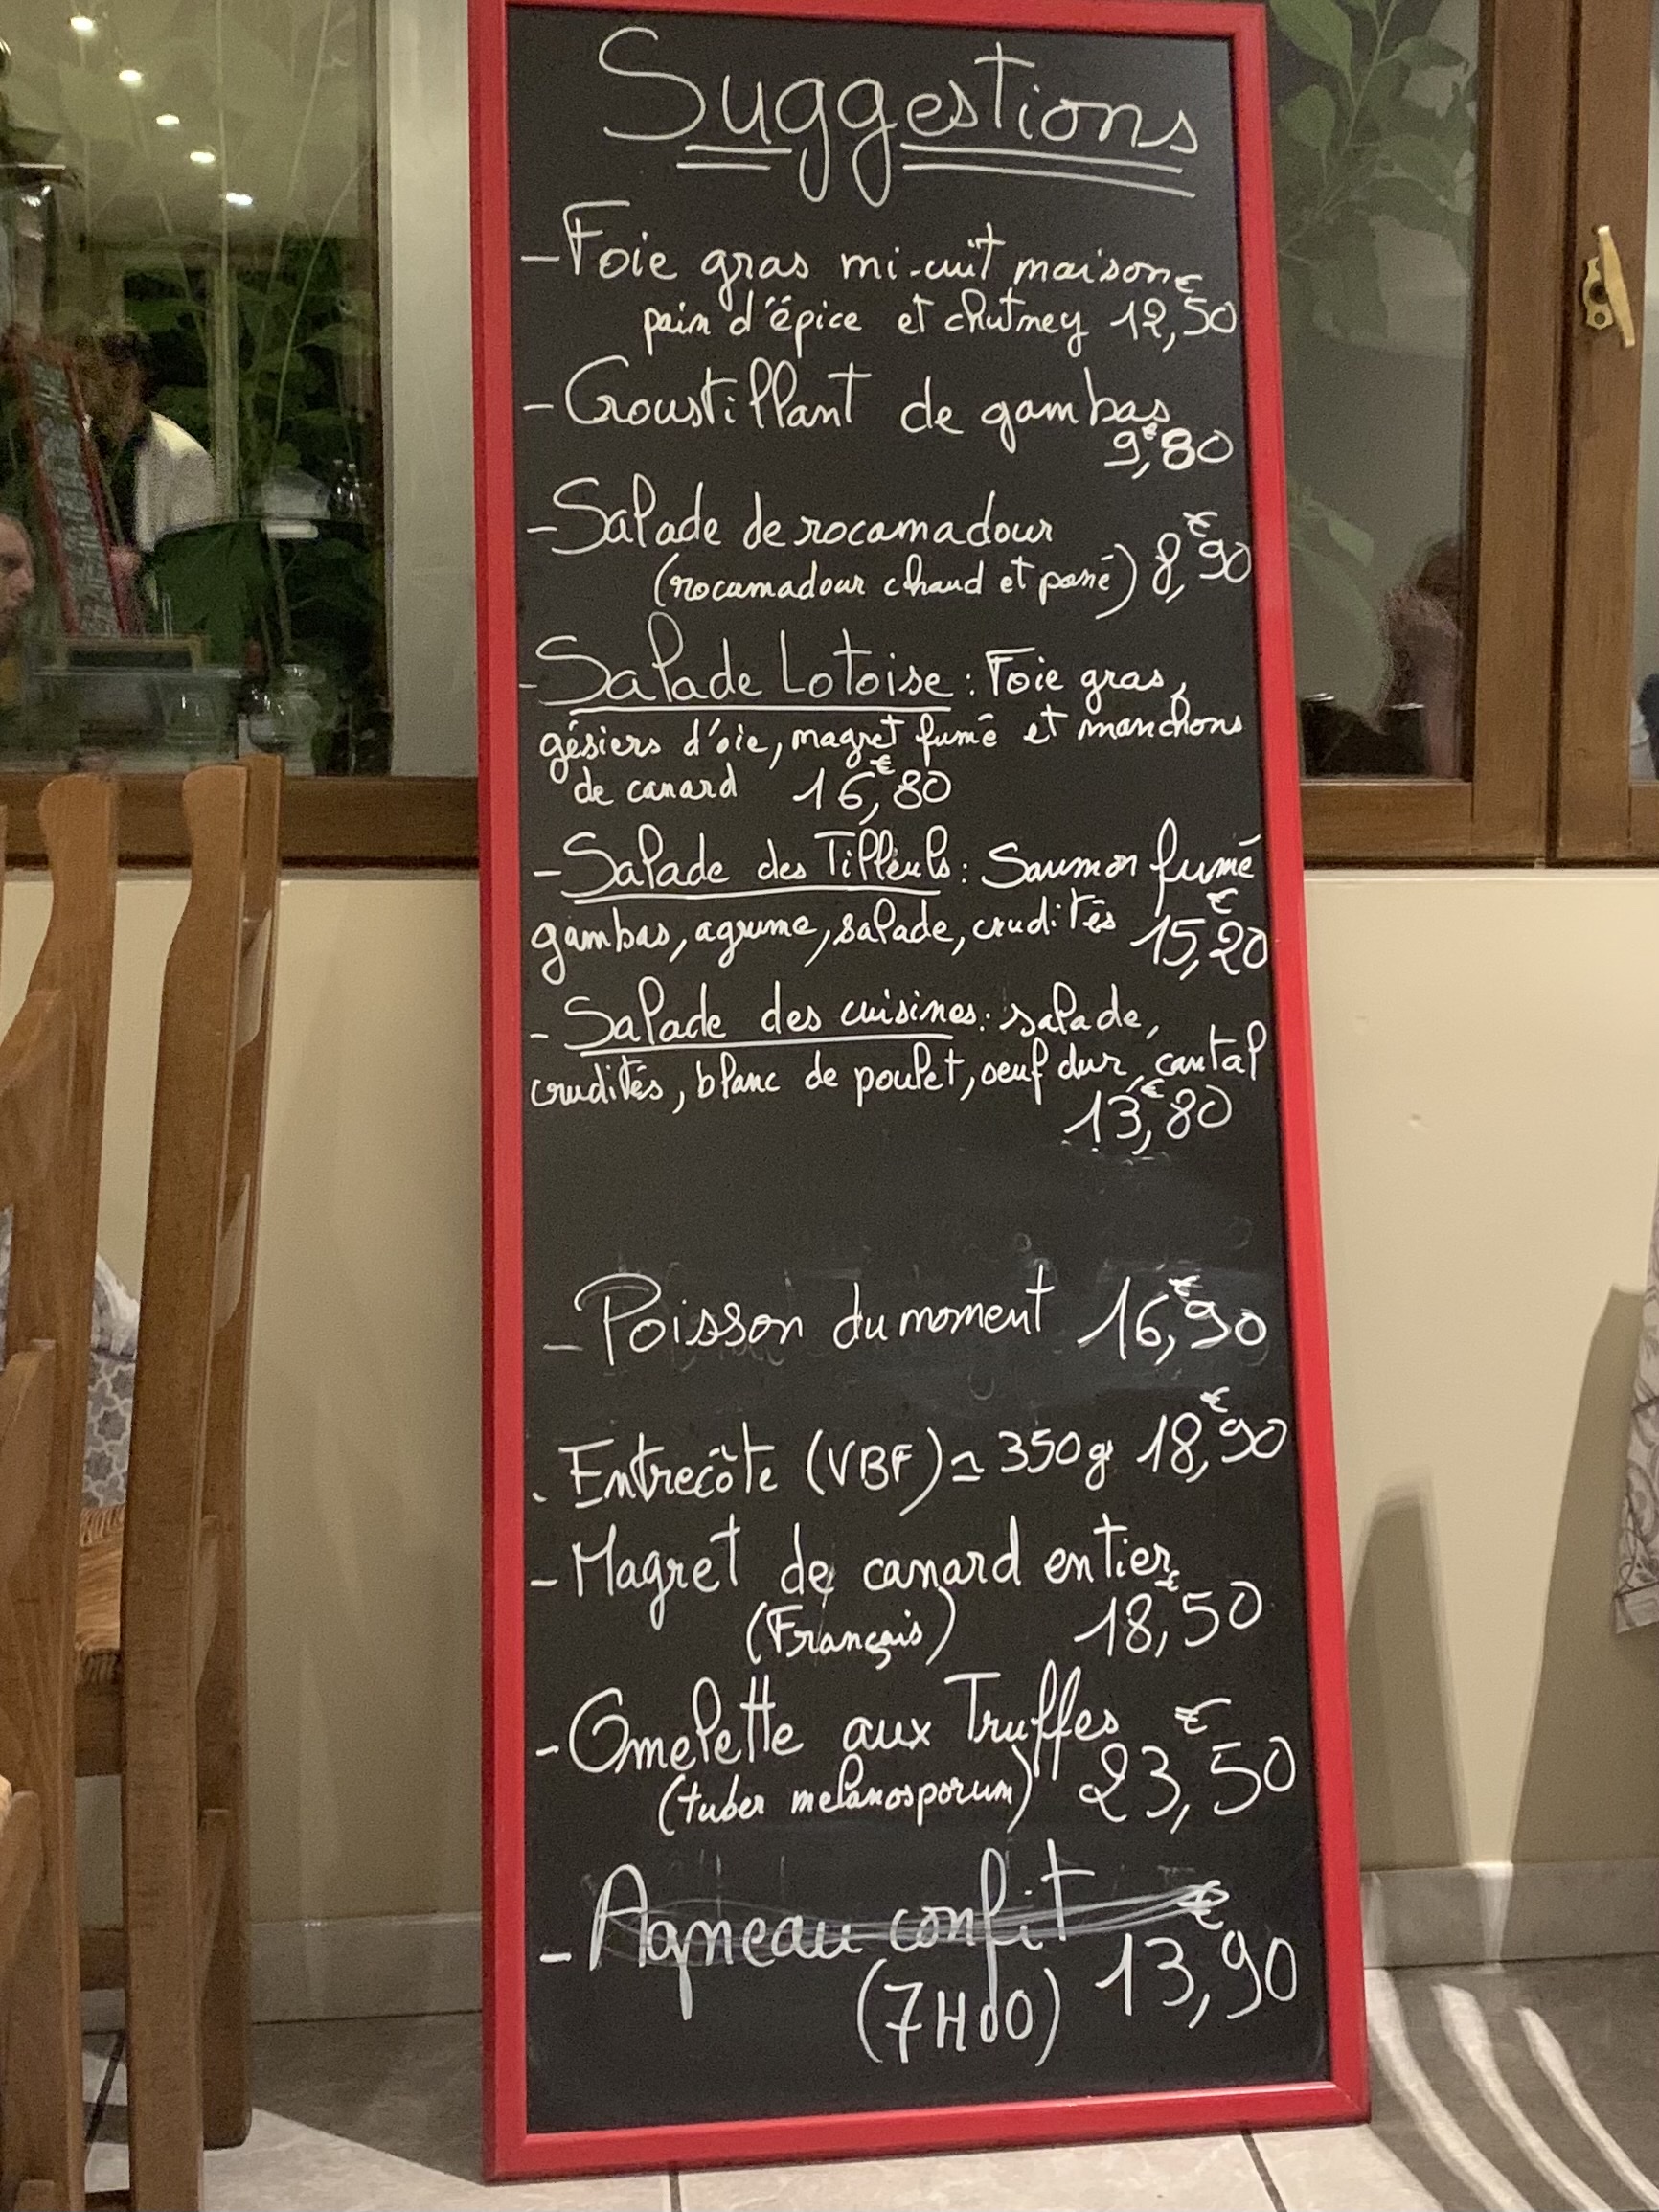 Suggestions
- Foie gras mi-cuit maison
pain d'épice et chutney 12,€50
- Croustillant de gambas
9,€80
- Salade de rocamadour
(rocamadour chaud et pané) 8,€90
- Salade Lotoise : Foie gras,
gésiers d'oie, magret fumé et manchons
de canard 16,€80
- Salade des Tilleuls : Saumon fumé
gambas, agrume, salade, crudités 15,€20
- Salade des cuisines : salade,
crudités, blanc de poulet, oeuf dur, cantal
13,€80
- Poisson du moment 16,€90
. Entrecôte (VBF) ≃ 350g 18,€90
- Magret de canard entier
(Français) 18,€50
- Omelette aux Truffes
(tuber melanosporum) 23,€50
- Agneau confit
(7H00) 13,€90